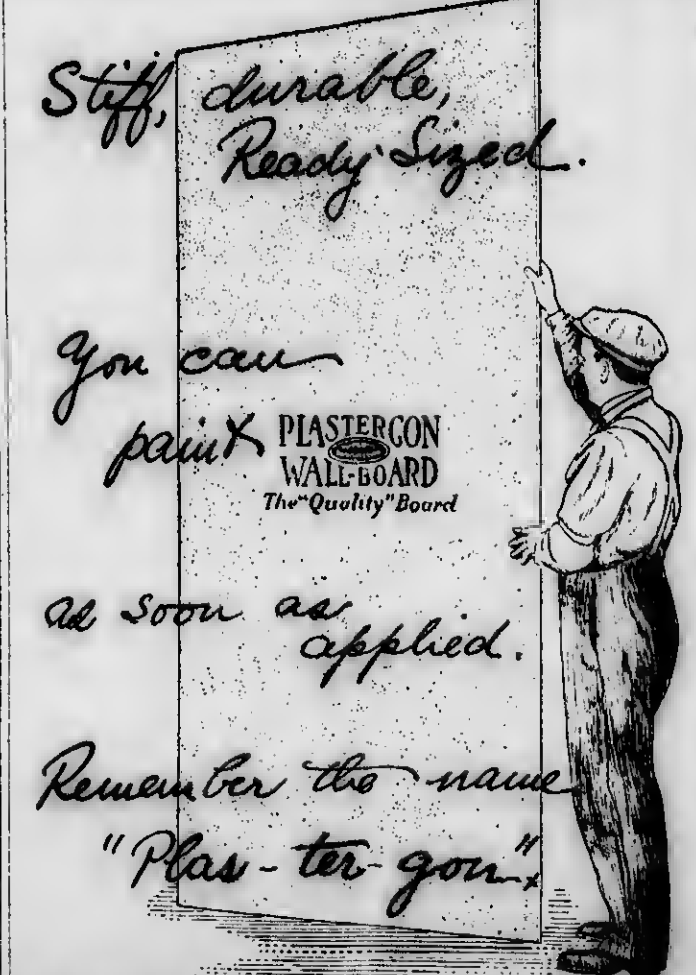 Stiff, durable,
Ready Sized.
You can
paint PLASTERGON
WALL-BOARD
The "Quality" Board
as soon as
applied.
Remember the name
"Plas-ter-gon"